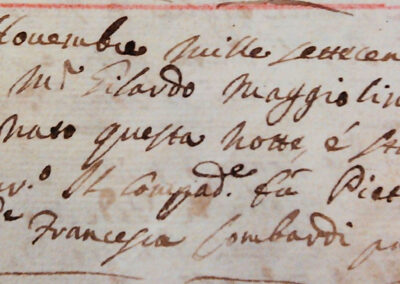 Novembre mille settecen
M.r Gilardo Maggiolin
nato questa notte, é sta
Il Compad.e fù Piet
Francesca Lombardi